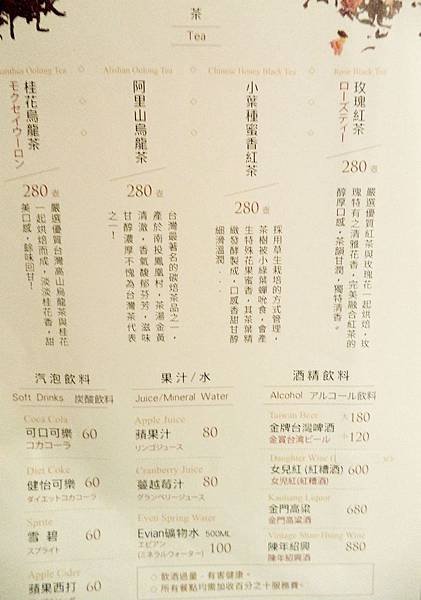 茶
Tea
玫瑰紅茶
ローズティー
Rose Black Tea
280壺
嚴選優質紅茶與玫瑰花一起烘焙，玫
瑰特有之清雅花香，完美融合紅茶的
醇厚口感，茶韻甘潤，獨特清香。
小葉種蜜香紅茶
Chinese Honey Black Tea
280壺
採用草生栽培的方式管理，
茶樹被小綠葉蟬吮食，會產
生特殊花果蜜香，其茶葉精
緻發酵製成，口感香甜甘醇
細滑溫潤....
阿里山烏龍茶
Alishan Oolong Tea
280壺
台灣最著名的碳焙茶品之一，
產於南投鳳凰村，茶湯金黃
清澈，香氣馥郁芬芳，滋味
甘醇濃厚不愧為台灣茶代表
之一！
桂花烏龍茶
モクセイウーロン
Oolong Tea
280壺
嚴選優質台灣高山烏龍茶與桂花
一起烘焙而成，淡淡桂花香，甜
美口感，餘味回甘！
汽泡飲料
Soft Drinks 炭酸飲料
Coca Cola
可口可樂 60
コカコーラ
Diet Coke
健怡可樂 60
ダイエットコカコーラ
Sprite
雪碧 60
スプライト
Apple Cider
蘋果西打 60
果汁/水
Juice/Mineral Water
Apple Juice
蘋果汁 80
リンゴジュース
Cranberry Juice
蔓越莓汁 80
グランベリージュース
Even Spring Water
Evian礦物水 500ML
エビアン
(ミネラルウォーター) 100
酒精飲料
Alcohol アルコール飲料
Taiwan Beer 大180
金牌台灣啤酒
金賞台湾ビール 小120
Daughter Wine
女兒紅(紅糟酒) 600
女児紅(紅糟酒)
Kaoliang Liquor
金門高粱 680
金門高粱酒
Vintage Shao Hsing Wine
陳年紹興 880
陳年紹興酒
◇ 飲酒過量，有害健康。
◇ 所有餐點均需加收百分之十服務費。